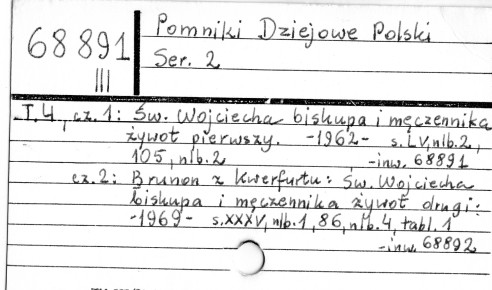 68891
III
Pomniki Dziejowe Polski
Ser. 2
T.4, cz.1: Św. Wojciecha biskupa i męczennika
żywot pierwszy. -1962- s.LV, nlb.2,
105, nlb.2
-inw. 68891
cz.2: Brunon z Kwerfurtu: Św. Wojciecha
biskupa i męczennika żywot drugi:
-1969- s.XXXV, nlb.1, 86, nlb.4, tabl.1
-inw. 68892